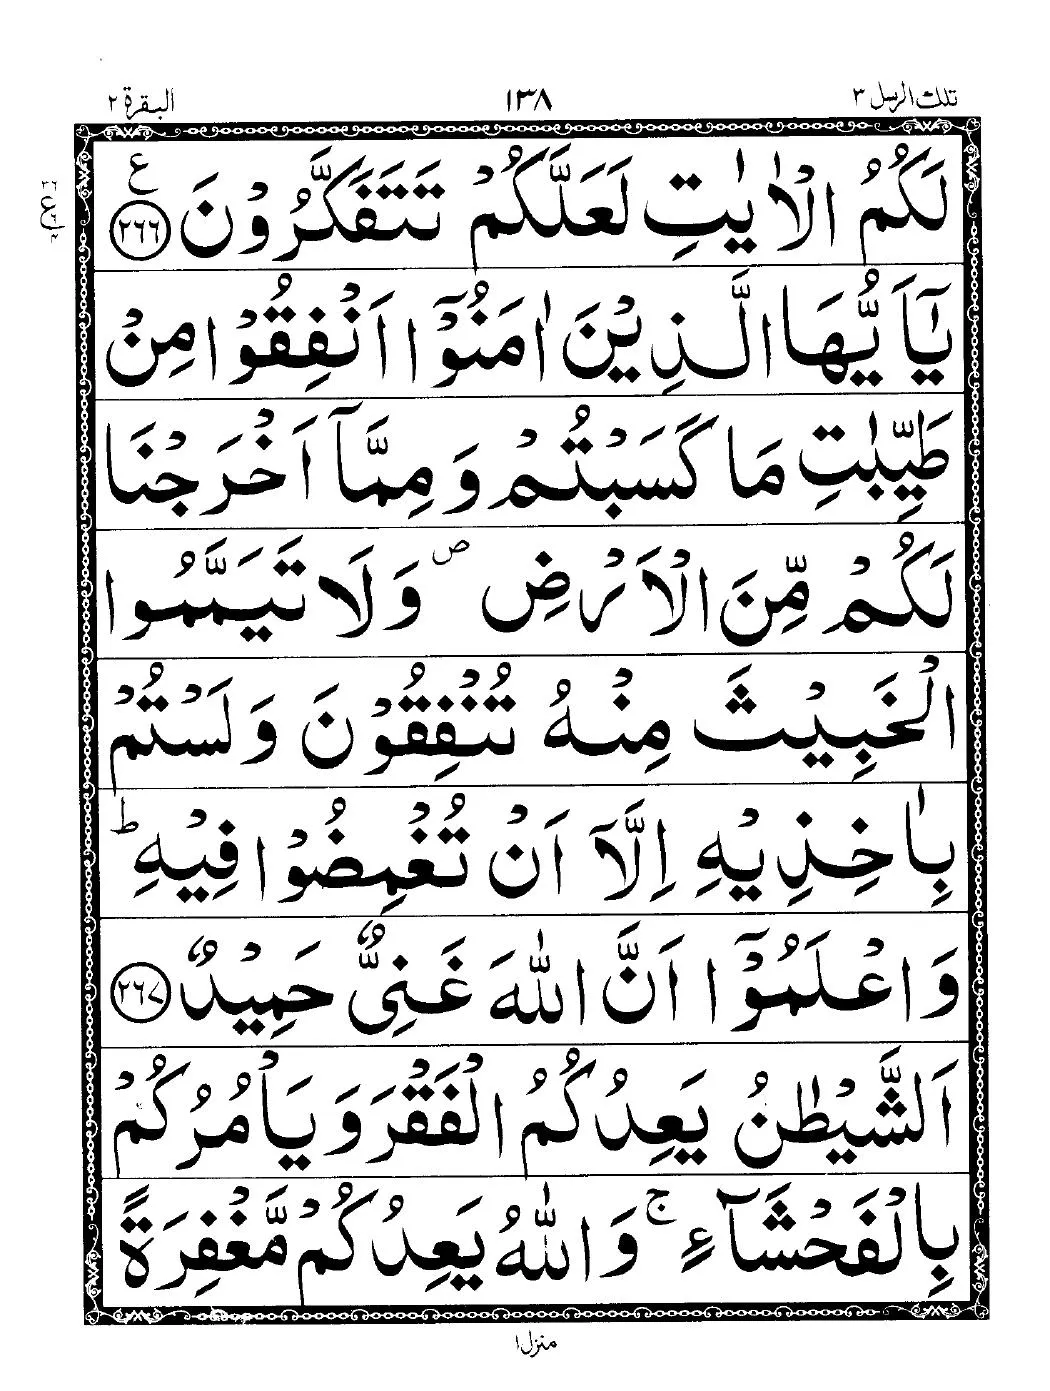 تلك الرسل ٣
١٣٨
البقرة ٢
لَكُمُ الْاٰيٰتِ لَعَلَّكُمْ تَتَفَكَّرُوْنَ ع ﴿٢٦٦﴾
يٰٓاَيُّهَا الَّذِيْنَ اٰمَنُوْٓا اَنْفِقُوْا مِنْ
طَيِّبٰتِ مَا كَسَبْتُمْ وَمِمَّآ اَخْرَجْنَا
لَكُمْ مِّنَ الْاَرْضِ ص وَلَا تَيَمَّمُوا
الْخَبِيْثَ مِنْهُ تُنْفِقُوْنَ وَلَسْتُمْ
بِاٰخِذِيْهِ اِلَّآ اَنْ تُغْمِضُوْا فِيْهِ ط
وَاعْلَمُوْٓا اَنَّ اللّٰهَ غَنِيٌّ حَمِيْدٌ ﴿٢٦٧﴾
اَلشَّيْطٰنُ يَعِدُكُمُ الْفَقْرَ وَيَاْمُرُكُمْ
بِالْفَحْشَآءِ ج وَاللّٰهُ يَعِدُكُمْ مَّغْفِرَةً
منزل ١